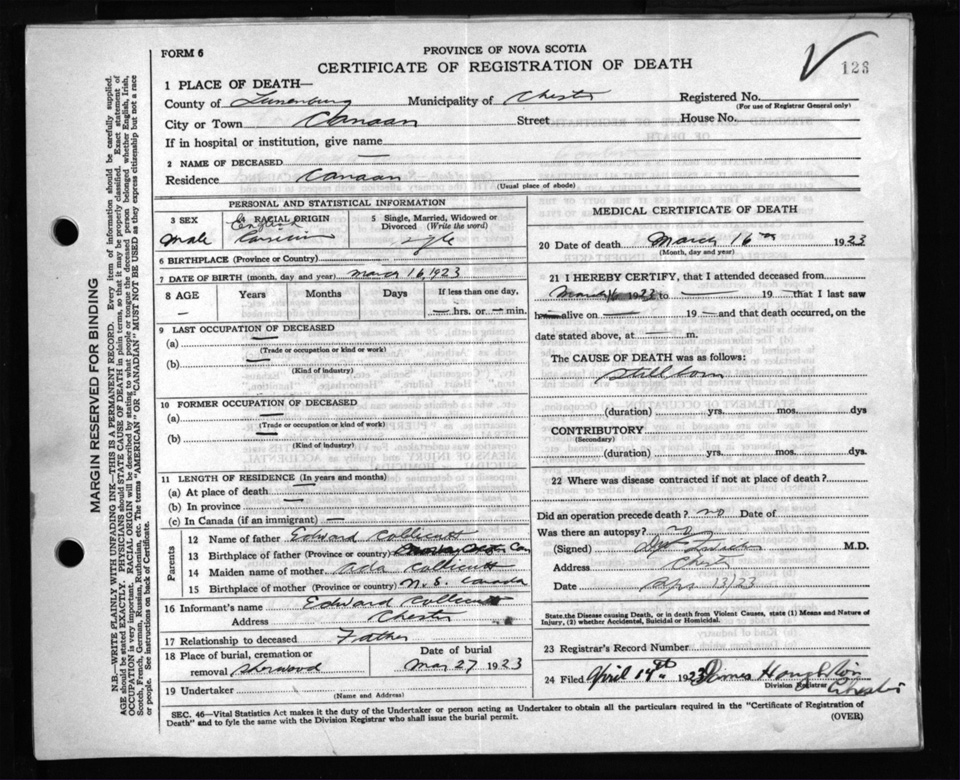 FORM 6
PROVINCE OF NOVA SCOTIA
CERTIFICATE OF REGISTRATION OF DEATH
123
1 PLACE OF DEATH—
County of Lunenburg Municipality of Chester Registered No.
(For use of Registrar General only)
City or Town Canaan Street House No.
If in hospital or institution, give name
2 NAME OF DECEASED —
Residence Canaan
(Usual place of abode)
PERSONAL AND STATISTICAL INFORMATION
3 SEX 4 RACIAL ORIGIN 5 Single, Married, Widowed or Divorced (Write the word)
Male English
6 BIRTHPLACE (Province or Country)
7 DATE OF BIRTH (month, day and year) March 16, 1923
8 AGE Years Months Days If less than one day,
— — hrs. or — min.
9 LAST OCCUPATION OF DECEASED
(a) —
(Trade or occupation or kind or work)
(b) —
(Kind of industry)
10 FORMER OCCUPATION OF DECEASED
(a) —
(Trade or occupation or kind or work)
(b) —
(Kind of industry)
11 LENGTH OF RESIDENCE (In years and months)
(a) At place of death —
(b) In province —
(c) In Canada (if an immigrant) —
Parents
12 Name of father Edward Collicutt
13 Birthplace of father (Province or country)
14 Maiden name of mother Ada Collicutt
15 Birthplace of mother (Province or country) N.S. Canada
16 Informant's name Edward Collicutt
Address Chester
17 Relationship to deceased Father
18 Place of burial, cremation or removal Sherwood Date of burial Mar 27 1923
19 Undertaker
(Name and Address)
MEDICAL CERTIFICATE OF DEATH
20 Date of death March 16th 1923
(Month, day and year)
21 I HEREBY CERTIFY, that I attended deceased from
March 16 1923 to — 19 — that I last saw
h— alive on — 19 — and that death occurred, on the
date stated above, at — m.
The CAUSE OF DEATH was as follows:
Stillborn
(duration) yrs. mos. dys
CONTRIBUTORY
(Secondary)
(duration) yrs. mos. dys
22 Where was disease contracted if not at place of death?
Did an operation precede death? no Date of
Was there an autopsy? no
(Signed) M.D.
Address Chester
Date Apr 13/23
State the Disease causing Death, or in death from Violent Causes, state (1) Means and Nature of
Injury, (2) whether Accidental, Suicidal or Homicidal.
23 Registrar's Record Number
24 Filed April 19th 1923 James Houghton
Division Registrar Chester
SEC. 46—Vital Statistics Act makes it the duty of the Undertaker or person acting as Undertaker to obtain all the particulars required in the "Certificate of Registration of
Death" and to fyle the same with the Division Registrar who shall issue the burial permit.
(OVER)
MARGIN RESERVED FOR BINDING
N.B.—WRITE PLAINLY WITH UNFADING INK—THIS IS A PERMANENT RECORD. Every item of information should be carefully supplied.
AGE should be stated EXACTLY. PHYSICIANS should STATE CAUSE OF DEATH in plain terms, so that it may be properly classified. Exact statement of
OCCUPATION is very important. RACIAL ORIGIN will be described by stating to what people or tongue the deceased person belonged whether English, Irish,
Scotch, French, German, Russian, Ruthenian, etc. The terms "AMERICAN" OR "CANADIAN" MUST NOT BE USED as they express citizenship but not a race
or people. See instructions on back of Certificate.